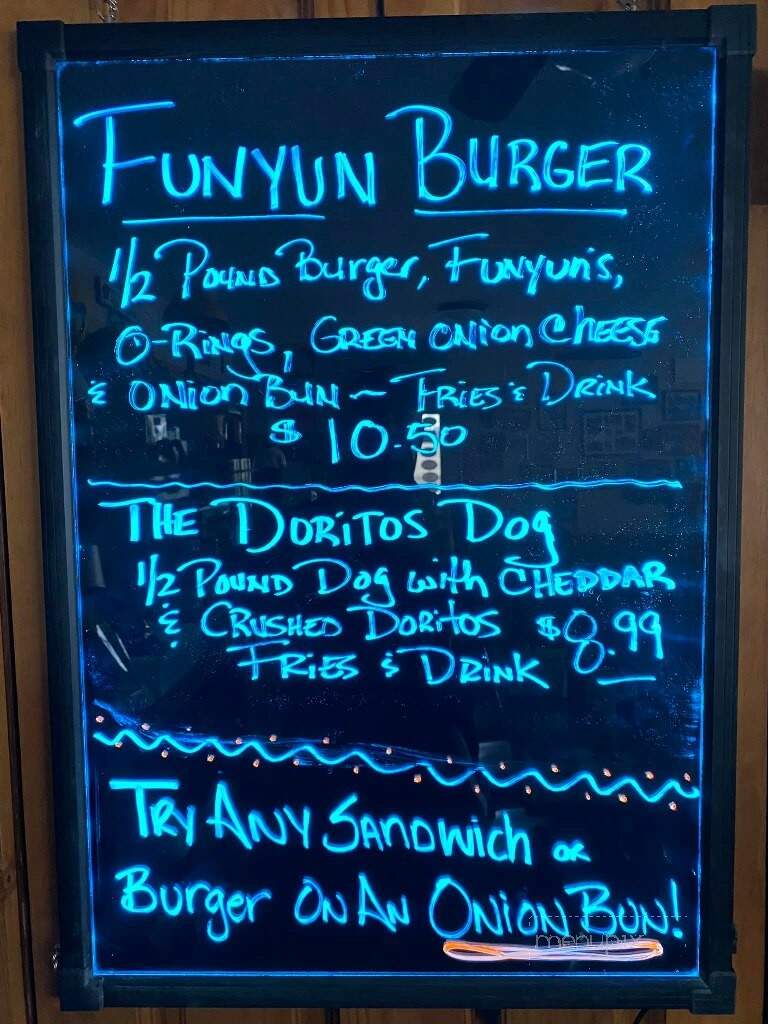 FUNYUN BURGER
1/2 POUND Burger, FUNYUN'S,
O-RINGS, GREEN ONION CHEESE
& ONION BUN ~ FRIES & DRINK
$ 10.50
THE DORITOS DOG
1/2 POUND DOG with CHEDDAR
& CRUSHED DORITOS $8.99
FRIES & DRINK
TRY ANY SANDWICH OR
Burger ON AN ONION BUN!
menupix